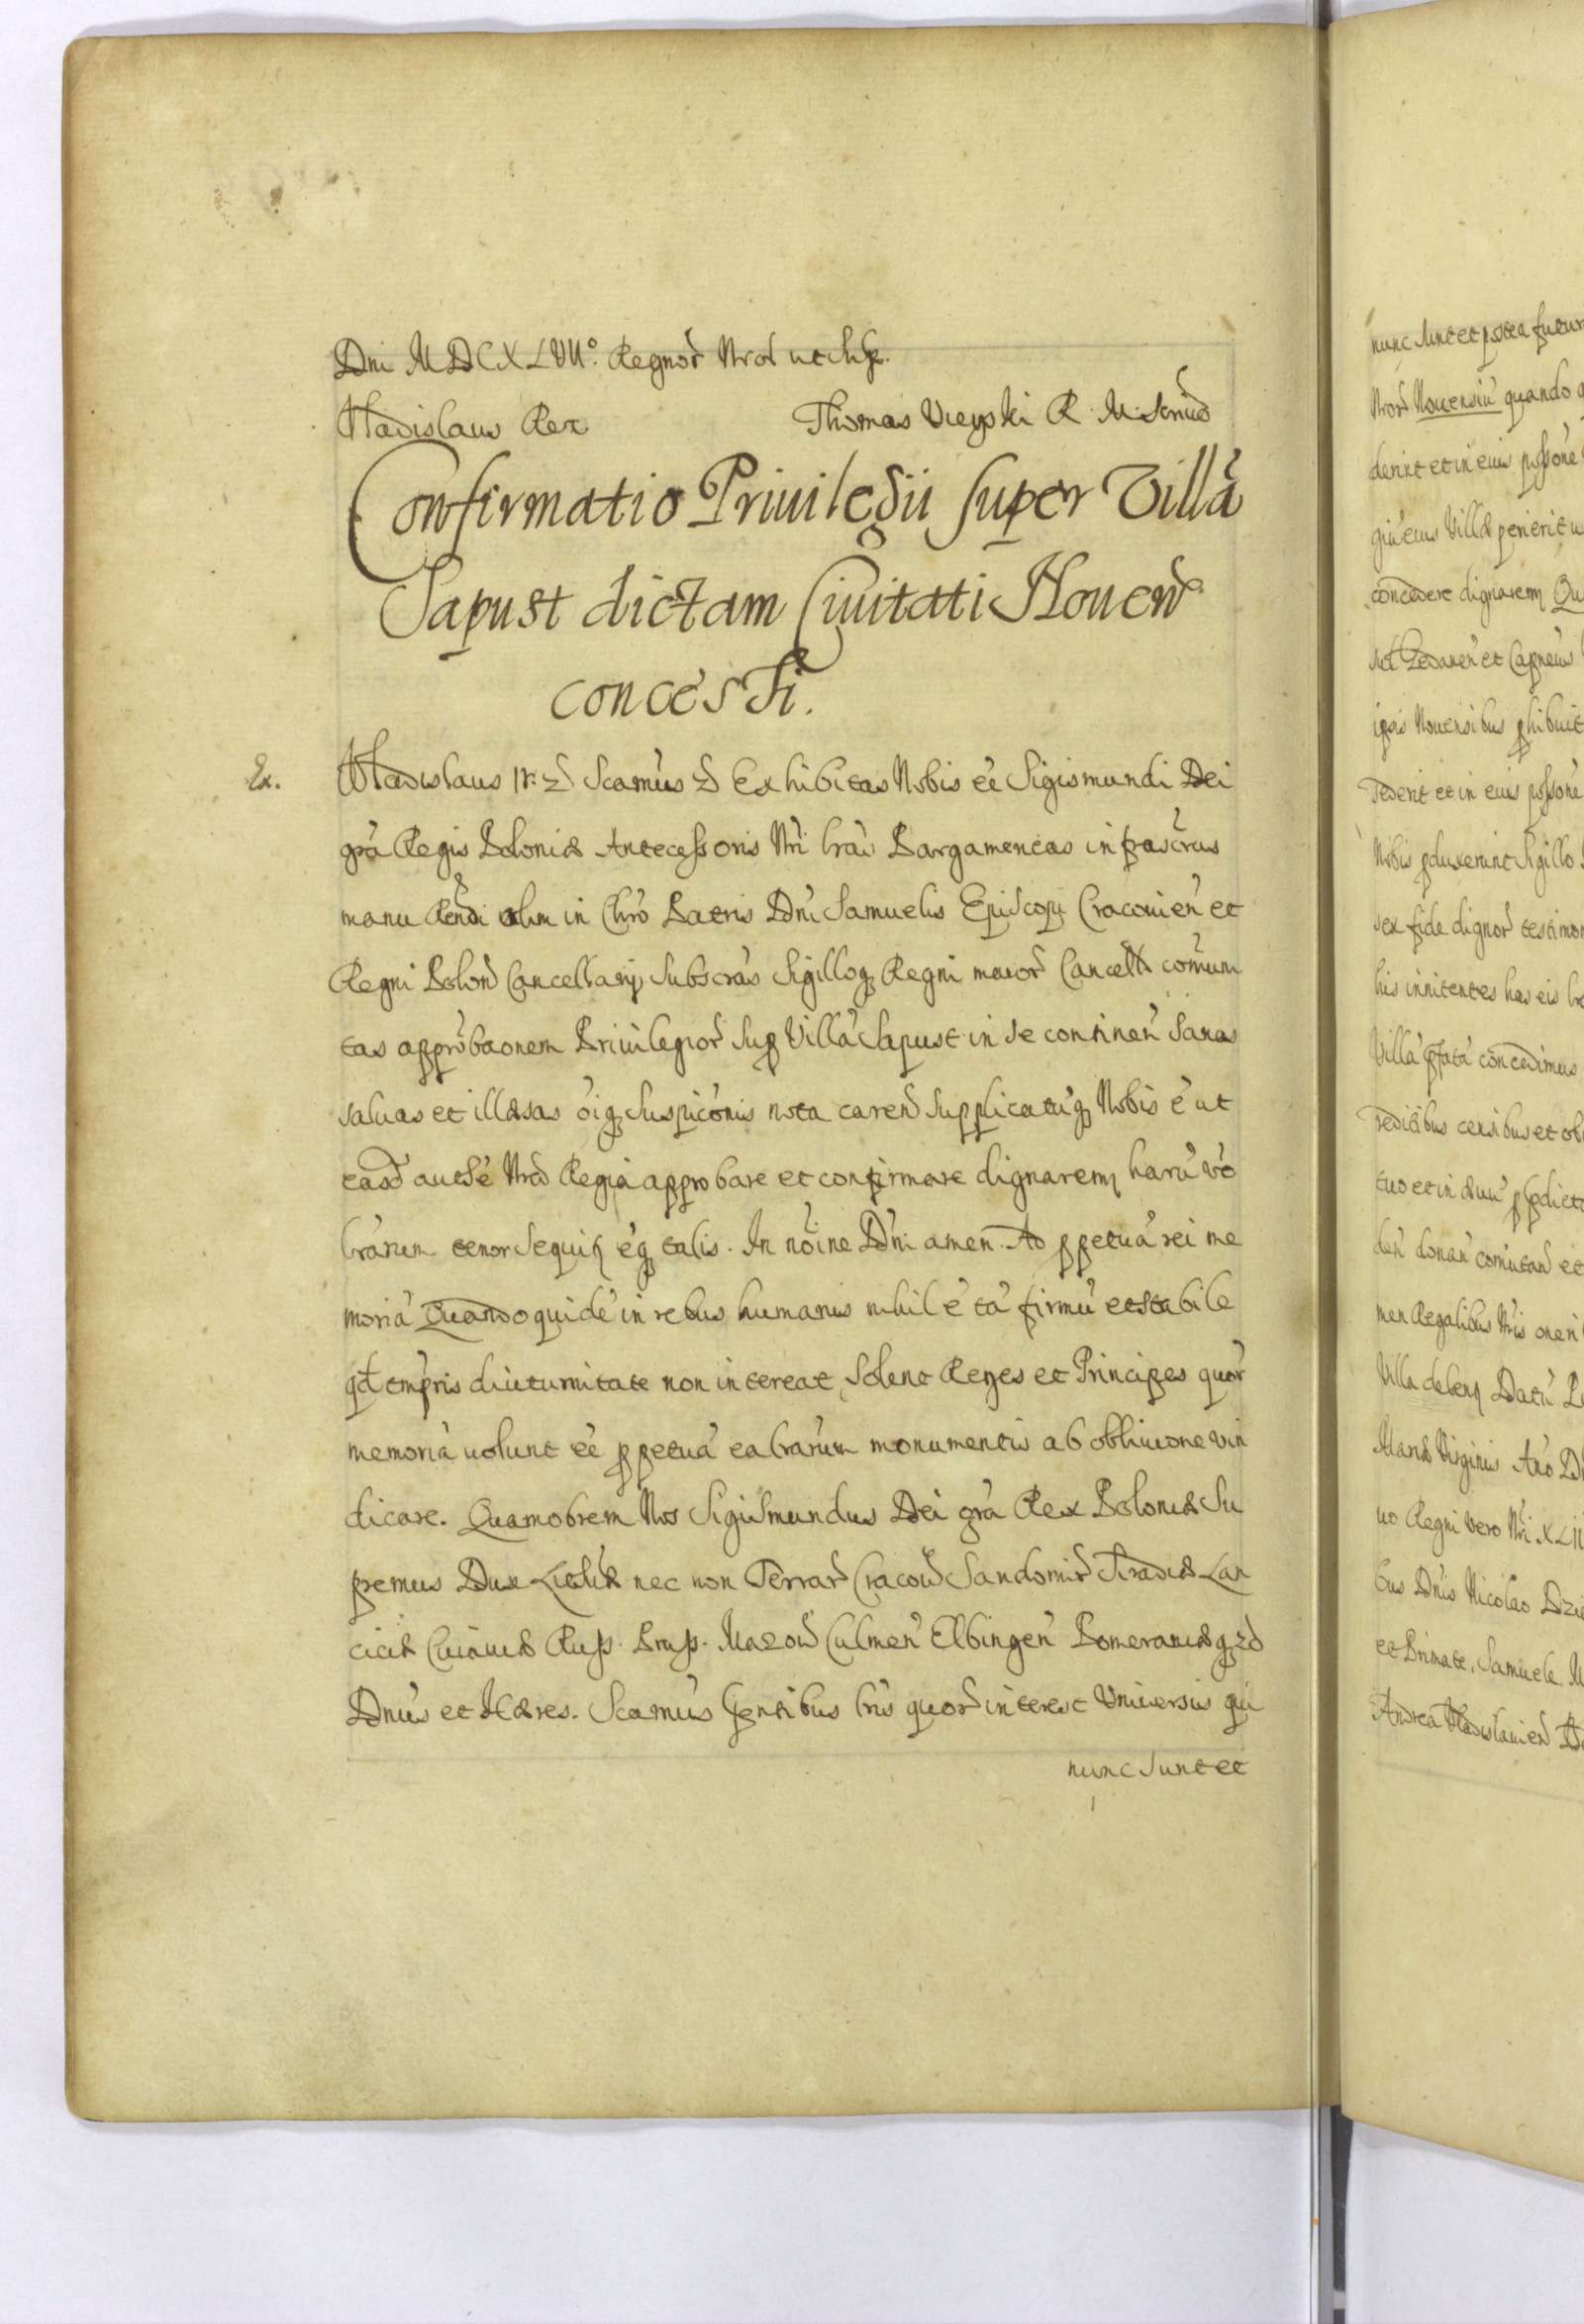 Dni MDCXLVII°. Regnor Nror ut supr.
Vladislaus Rex Thomas Uieyski R. M. Secrius
Confirmatio Priuilegii super Villã
Sapust dictam Ciuitati Nouen
concessi.
Ex. Vladislaus IV. Scamus Exhibitas Nobis eẽ Sigismundi Dei
gra Regis Poloniæ Antecessoris Nri lras Pargameneas infrascras
manu Rendi olim in Chro Patris Dni Samuelis Episcopi Cracouien et
Regni Polon Cancellarij subscras sigilloq Regni maior Cancellæ comuni
tas approbaonem Priuilegior sup Villa Sapust in se continen sanas
saluas et illæsas oiq suspiconis nota caren supplicatuq Nobis ẽ ut
easd autte Nra Regia approbare et confirmare dignarem haru vo
lrarum tenor sequit eq talis. In noine Dni amen. Ad ppetuã rei me
moriã Quandoquidẽ in rebus humanis nihil ẽ tã firmũ et stabile
qd tempris diuturnitate non intereat, Solent Reges et Principes quor
memoriã uolunt eẽ ppetuã ea lrarum monumentis ab obliuione vin
dicare. Quamobrem Nos Sigismundus Dei gra Rex Poloniæ Su
premus Dux Lithæ nec non Terrar Cracou Sandomir Siradiæ Lan
ciciæ Cuiauiæ Russ. Pruss. Mazou Culmen Elbingen Pomeraniæq
Dnus et Hæres. Scamus pentibus lris quor interest Vniuersis qui
nunc sunt et
nunc sunt et postea futur
Nror Nouensiũ quando
derint et in eius possone
giũ eius Villæ perierit
concedere dignarem Qu
et Capneus
ipsis Nouensibus phibuit
dederit et in eius possone
Nobis pduxerint Sigillo
sex fide dignor testimon
his innitentes has eis
Villã pfatã concedimus
redictibus censibus et
tuo et in æuũ
den donan comutan et
men Regalibus Nris oneri
Villa debent Datũ
Mariæ Virginis Ano
uo Regni vero Nri XLII
bus Dnis Nicolao
et Primate, Samuele
Andrea Vladislauien